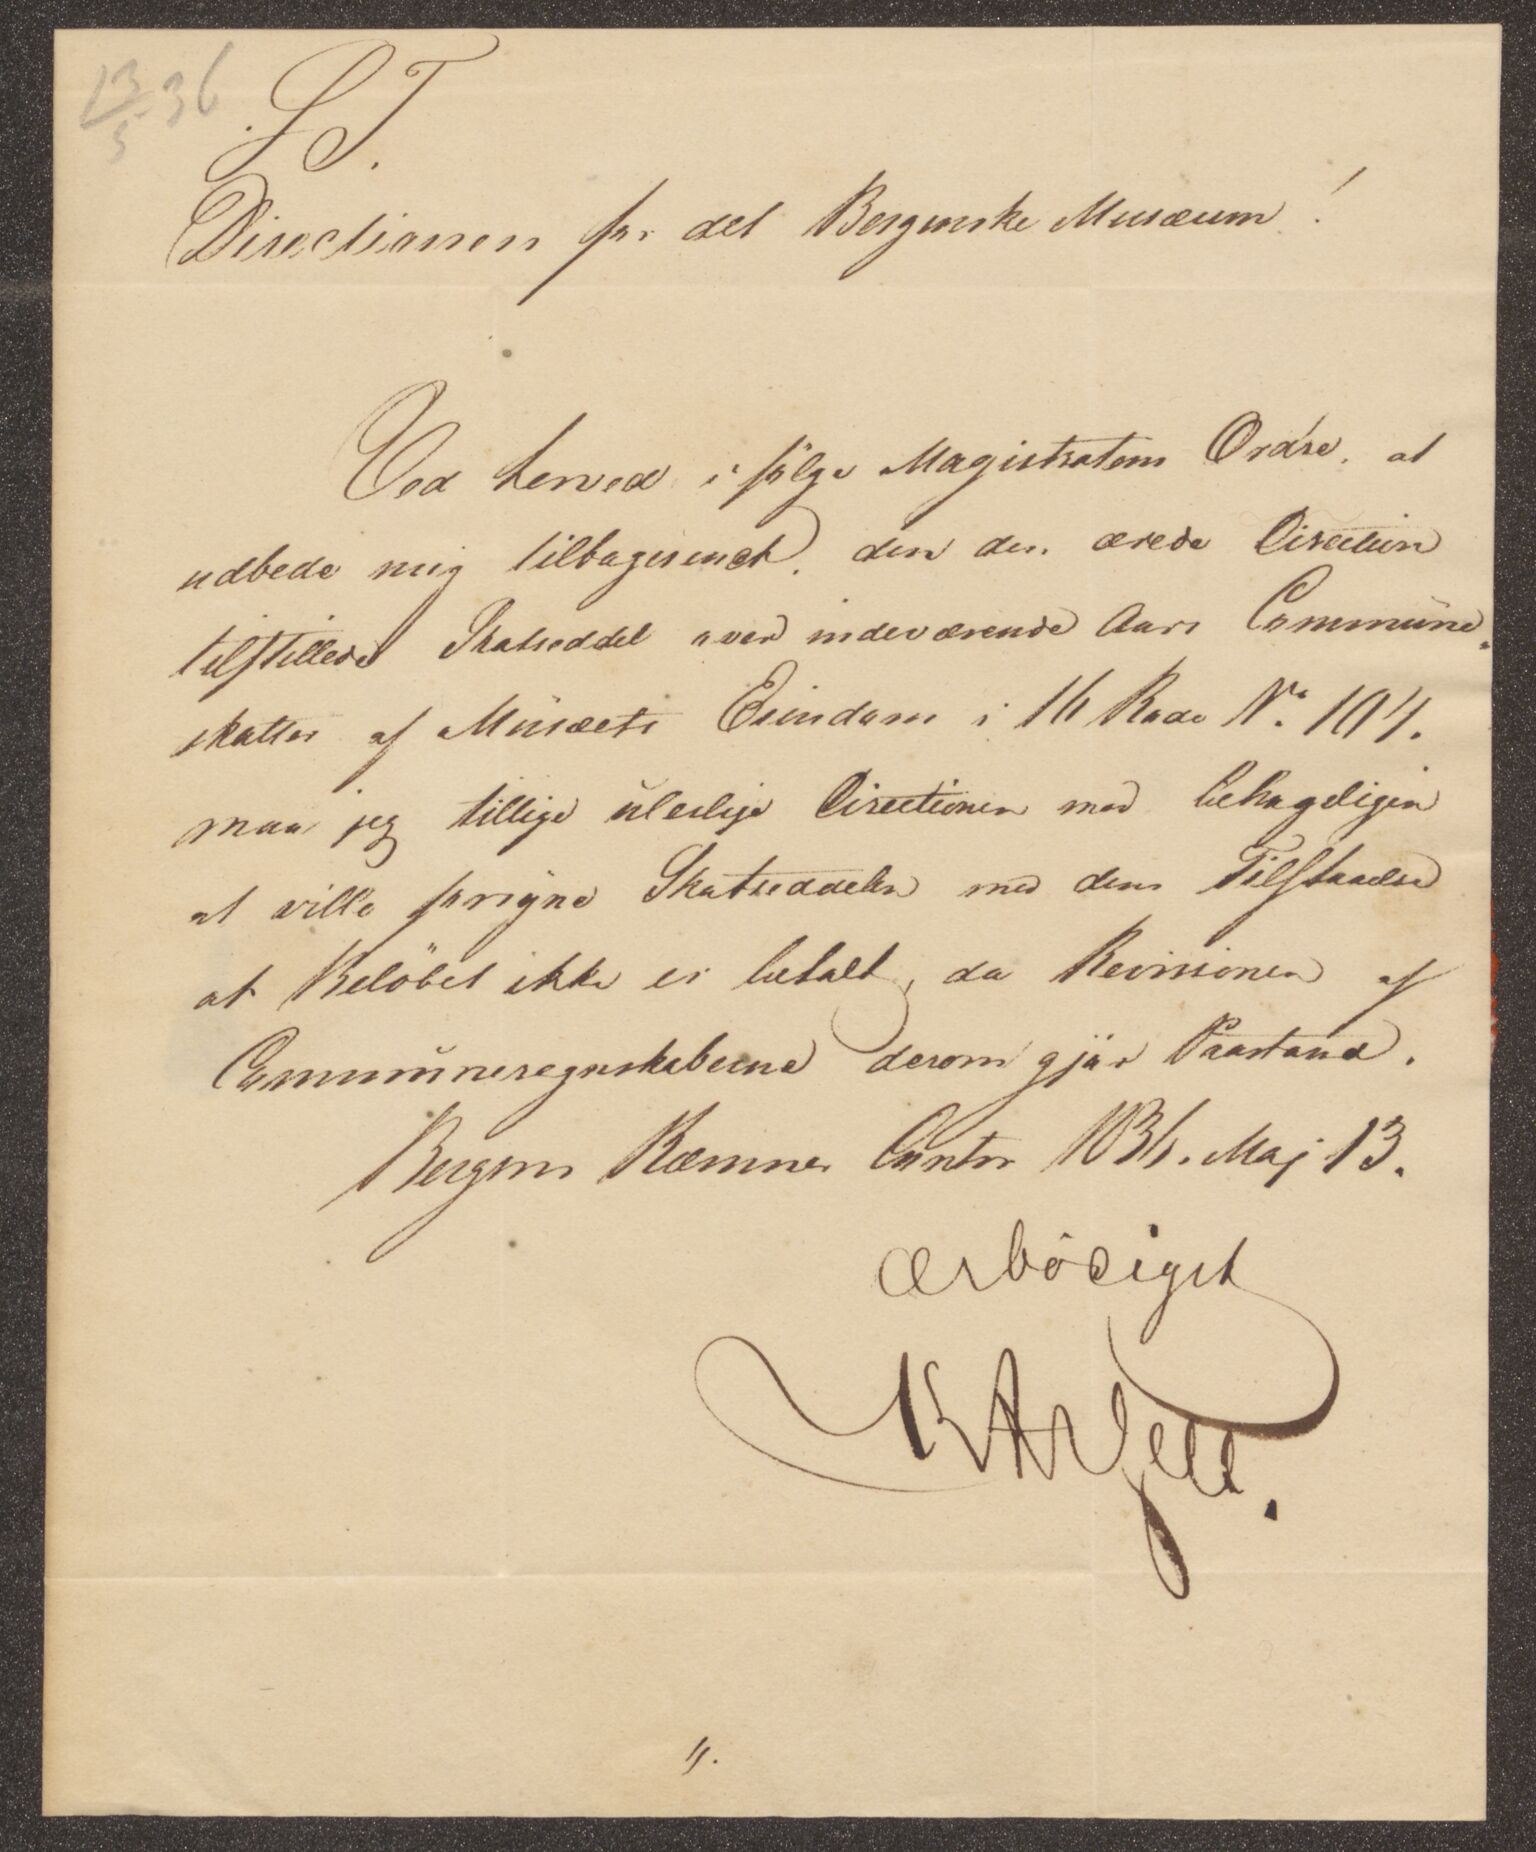 13/5 36
S. T.
Directionen for det Bergenske Musæum!
Ved herved i følge Magistratens Ordre, at
udbede mig tilbagesendt, den den ærede Direction
tilstillede Skatseddel over indeværende Aars Commune-
skatter af Musæets Eiendom i 16 Rode No. 104.
maa jeg tillige uleilige Directionen med behageligen
at ville forsyne Skatseddelen med dens Tilstaaelse
at Beløbet ikke er betalt, da Revisionen af
Communeregnskaberne derom gjør Paastand.
Bergens Kæmner Contor 1836. Maj 13.
Ærbødigst